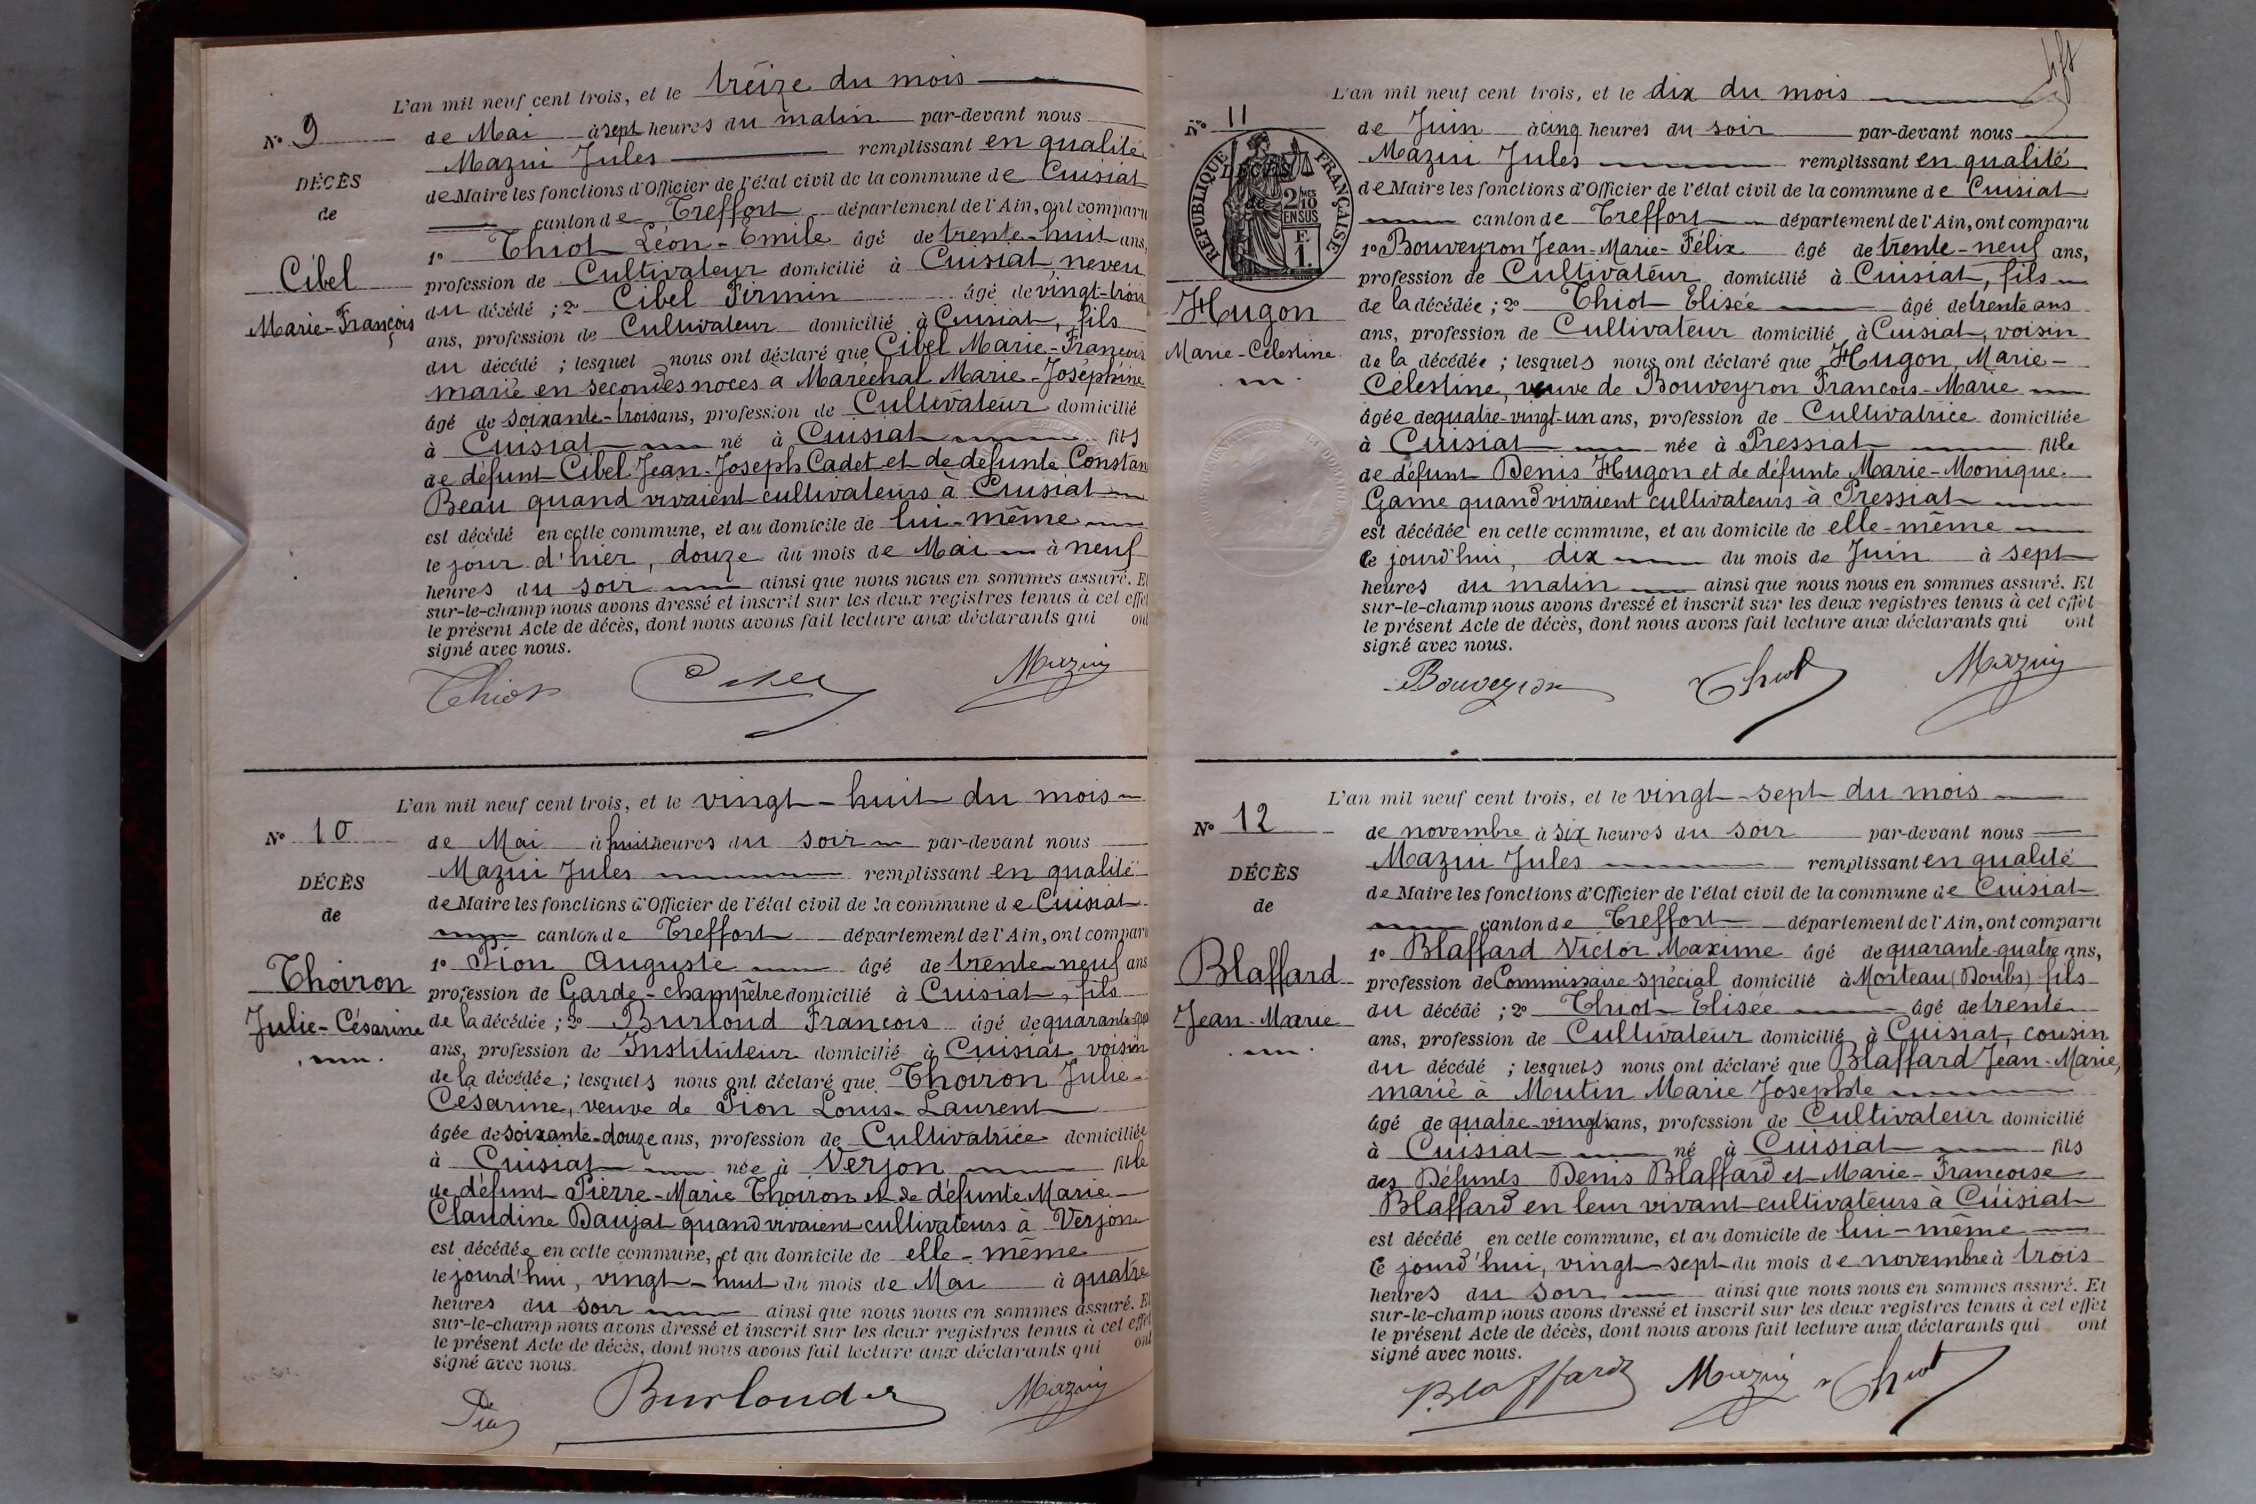 L'an mil neuf cent trois, et le treize du mois
N° 9
de Mai à sept heures du matin par-devant nous
Mazui Jules remplissant en qualité
DÉCÈS
de Maire les fonctions d'Officier de l'état civil de la commune de Cuisiat
de
canton de Treffort département de l'Ain, ont comparu
1° Thiot Léon-Emile âgé de trente-huit ans,
Cibel
profession de Cultivateur domicilié à Cuisiat, neveu
Marie-François
du décédé ; 2° Cibel Firmin âgé de vingt-trois
ans, profession de Cultivateur domicilié à Cuisiat, fils
du décédé ; lesquel nous ont déclaré que Cibel Marie-François
marié en secondes noces à Maréchal Marie-Joséphine
âgé de soixante-trois ans, profession de Cultivateur domicilié
à Cuisiat né à Cuisiat fils
de défunt Cibel Jean-Joseph Cadet et de defunte Constan
Beau quand vivaient cultivateurs à Cuisiat
est décédé en cette commune, et au domicile de lui-même
le jour d'hier, douze du mois de Mai à neuf
heures du soir ainsi que nous nous en sommes assuré. Et
sur-le-champ nous avons dressé et inscrit sur les deux registres tenus à cet effet
le présent Acte de décès, dont nous avons fait lecture aux déclarants qui ont
signé avec nous.
Thiot Cibel Mazuy
L'an mil neuf cent trois, et le vingt-huit du mois
N° 10
de Mai à huit heures du soir par-devant nous
Mazui Jules remplissant en qualité
DÉCÈS
de Maire les fonctions d'Officier de l'état civil de la commune de Cuisiat
de
canton de Treffort département de l'Ain, ont comparu
1° Pion Auguste âgé de trente-neuf ans
Thoiron
profession de Garde-champêtre domicilié à Cuisiat, fils
Julie-Césarine
de la décédée ; 2° Burloud François âgé de quarante
ans, profession de Instituteur domicilié à Cuisiat voisin
de la décédée ; lesquels nous ont déclaré que Thoiron Julie-
Césarine, veuve de Pion Louis-Laurent
âgée de soixante-douze ans, profession de Cultivatrice domiciliée
à Cuisiat née à Verjon fille
de défunt Pierre-Marie Thoiron et de défunte Marie-
Claudine Daujat quand vivaient cultivateurs à Verjon
est décédée en cette commune, et au domicile de elle-même
le jourd'hui, vingt-huit du mois de Mai à quatre
heures du soir ainsi que nous nous en sommes assuré. Et
sur-le-champ nous avons dressé et inscrit sur les deux registres tenus à cet effet
le présent Acte de décès, dont nous avons fait lecture aux déclarants qui ont
signé avec nous.
Pion Burloud Mazuy
L'an mil neuf cent trois, et le dix du mois
N° 11
de Juin à cinq heures du soir par-devant nous
Mazui Jules remplissant en qualité
RÉPUBLIQUE FRANÇAISE
DÉCÈS
2/10 EN SUS
F. 1.
de Maire les fonctions d'Officier de l'état civil de la commune de Cuisiat
de
canton de Treffort département de l'Ain, ont comparu
1° Bouveyron Jean-Marie-Félix âgé de trente-neuf ans,
profession de Cultivateur domicilié à Cuisiat, fils
Hugon
de la décédée ; 2° Thiot Elisée âgé de trente ans
Marie-Célestine
ans, profession de Cultivateur domicilié à Cuisiat, voisin
de la décédée ; lesquels nous ont déclaré que Hugon Marie-
Célestine, veuve de Bouveyron François-Marie
âgée de quatre-vingt-un ans, profession de Cultivatrice domiciliée
à Cuisiat née à Pressiat fille
de défunt Denis Hugon et de défunte Marie-Monique
Game quand vivaient cultivateurs à Pressiat
est décédée en cette commune, et au domicile de elle-même
Ce jourd'hui, dix du mois de Juin à sept
heures du matin ainsi que nous nous en sommes assuré. Et
sur-le-champ nous avons dressé et inscrit sur les deux registres tenus à cet effet
le présent Acte de décès, dont nous avons fait lecture aux déclarants qui ont
signé avec nous.
Bouveyron Thiot Mazuy
L'an mil neuf cent trois, et le vingt-sept du mois
N° 12
de novembre à six heures du soir par-devant nous
Mazui Jules remplissant en qualité
DÉCÈS
de Maire les fonctions d'Officier de l'état civil de la commune de Cuisiat
de
canton de Treffort département de l'Ain, ont comparu
1° Blaffard Victor Maxime âgé de quarante-quatre ans,
Blaffard
profession de Commissaire spécial domicilié à Morteau (Doubs) fils
Jean-Marie
du décédé ; 2° Thiot Elisée âgé de trente
ans, profession de Cultivateur domicilié à Cuisiat, cousin
du décédé ; lesquels nous ont déclaré que Blaffard Jean-Marie,
marié à Mutin Marie Josephte
âgé de quatre-vingts ans, profession de Cultivateur domicilié
à Cuisiat né à Cuisiat fils
des Défunts Denis Blaffard et Marie-Françoise
Blaffard en leur vivant cultivateurs à Cuisiat
est décédé en cette commune, et au domicile de lui-même
Ce jourd'hui, vingt-sept du mois de novembre à trois
heures du soir ainsi que nous nous en sommes assuré. Et
sur-le-champ nous avons dressé et inscrit sur les deux registres tenus à cet effet
le présent Acte de décès, dont nous avons fait lecture aux déclarants qui ont
signé avec nous.
Blaffard Mazuy Thiot